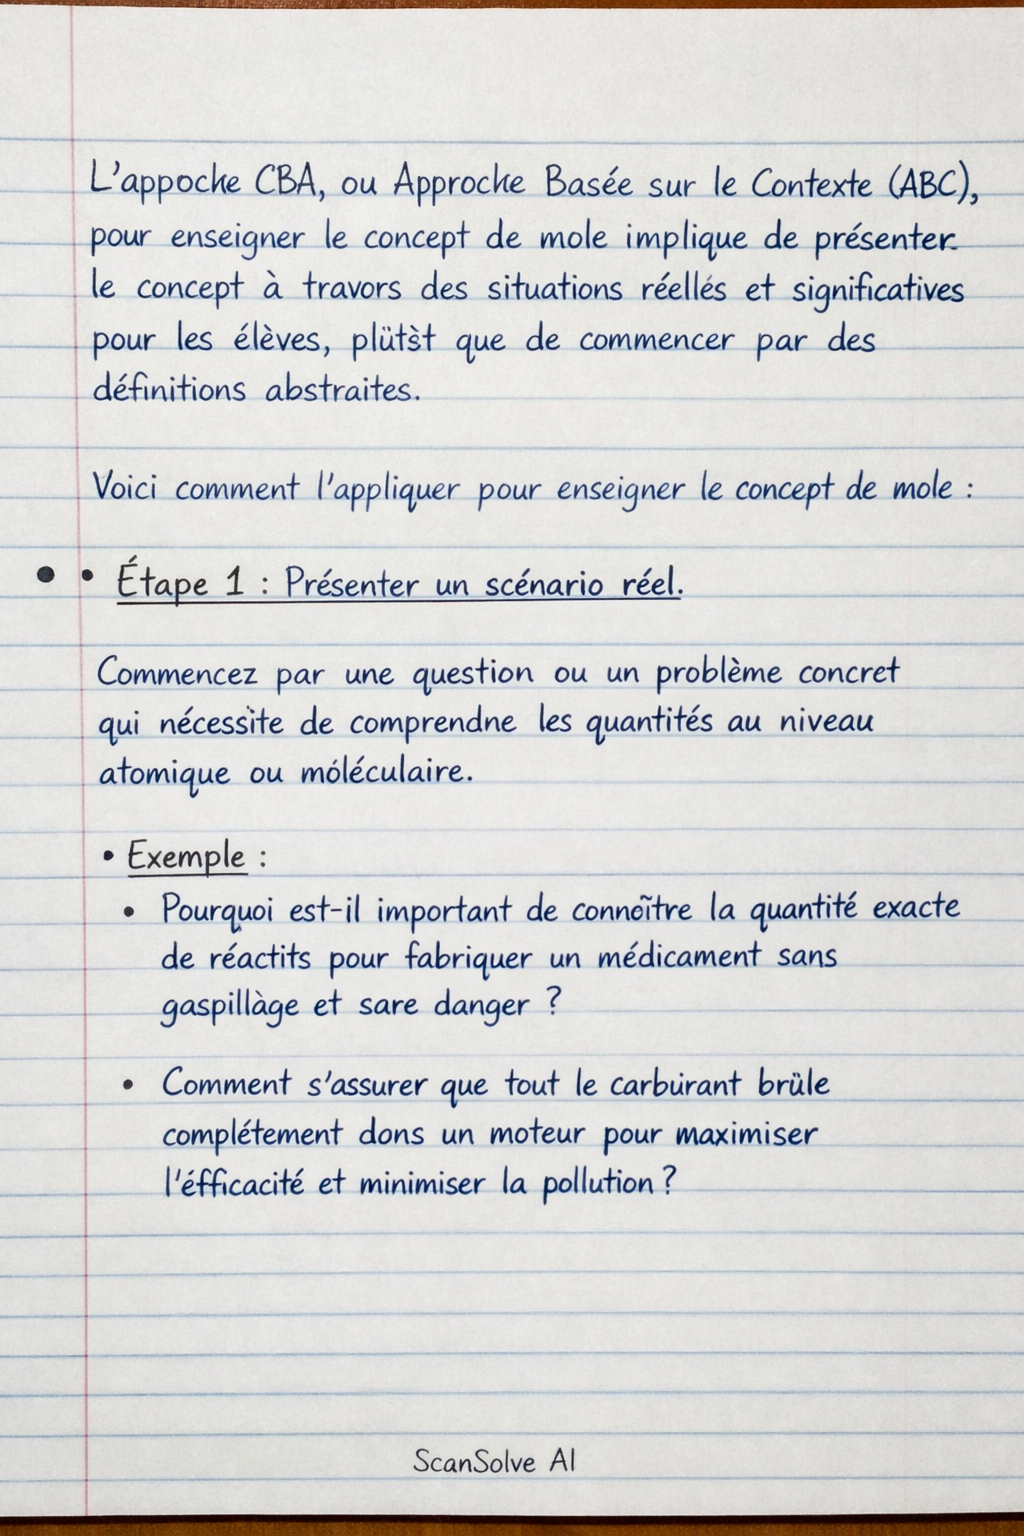 L'appoche CBA, ou Approche Basée sur le Contexte (ABC),
pour enseigner le concept de mole implique de présenter
le concept à travors des situations réellés et significatives
pour les élèves, plütŝt que de commencer par des
définitions abstraites.
Voici comment l'appliquer pour enseigner le concept de mole :
• • Étape 1 : Présenter un scénario réel.
Commencez par une question ou un problème concret
qui nécessìte de comprendne les quantités au niveau
atomique ou móléculaire.
• Exemple :
• Pourquoi est-il important de connoître la quantité exacte
de réactits pour fabriquer un médicament sans
gaspillàge et sare danger ?
• Comment s'assurer que tout le carburant brüle
complétement dons un moteur pour maximiser
l'éfficacité et minimiser la pollution ?
ScanSolve AI